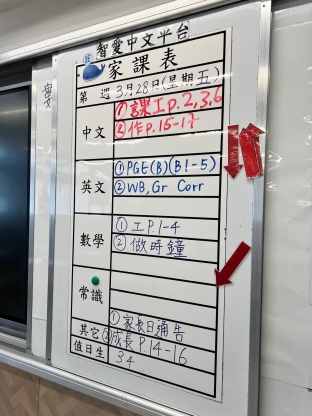 智愛中文平台
家課表
第 週 3月28日(星期五)
中文
① 課工p.2,3,6
② 作p.15-17
英文
① PGE(B)(B1-5)
② WB, Gr Corr
數學
① 工P1-4
② 做時鐘
常識
其它
① 家長日通告
② 成長P14-16
值日生
34